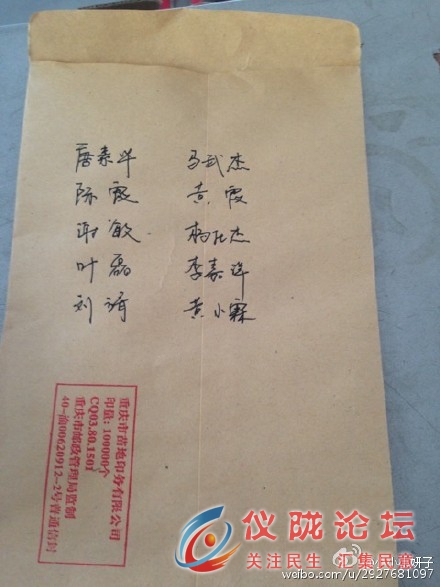 唐素华 马武杰
陈霞 黄霞
谢敏 杨仕杰
叶磊 李嘉洋
刘婧 黄小霖
重庆市苗地印务有限公司
印量：100000个
CQ03.80.1501
重庆市邮政管理局监制
40-渝00620912-2号普通信封
仪陇论坛
关注民生 汇集民意
weibo.com/u/2927681097